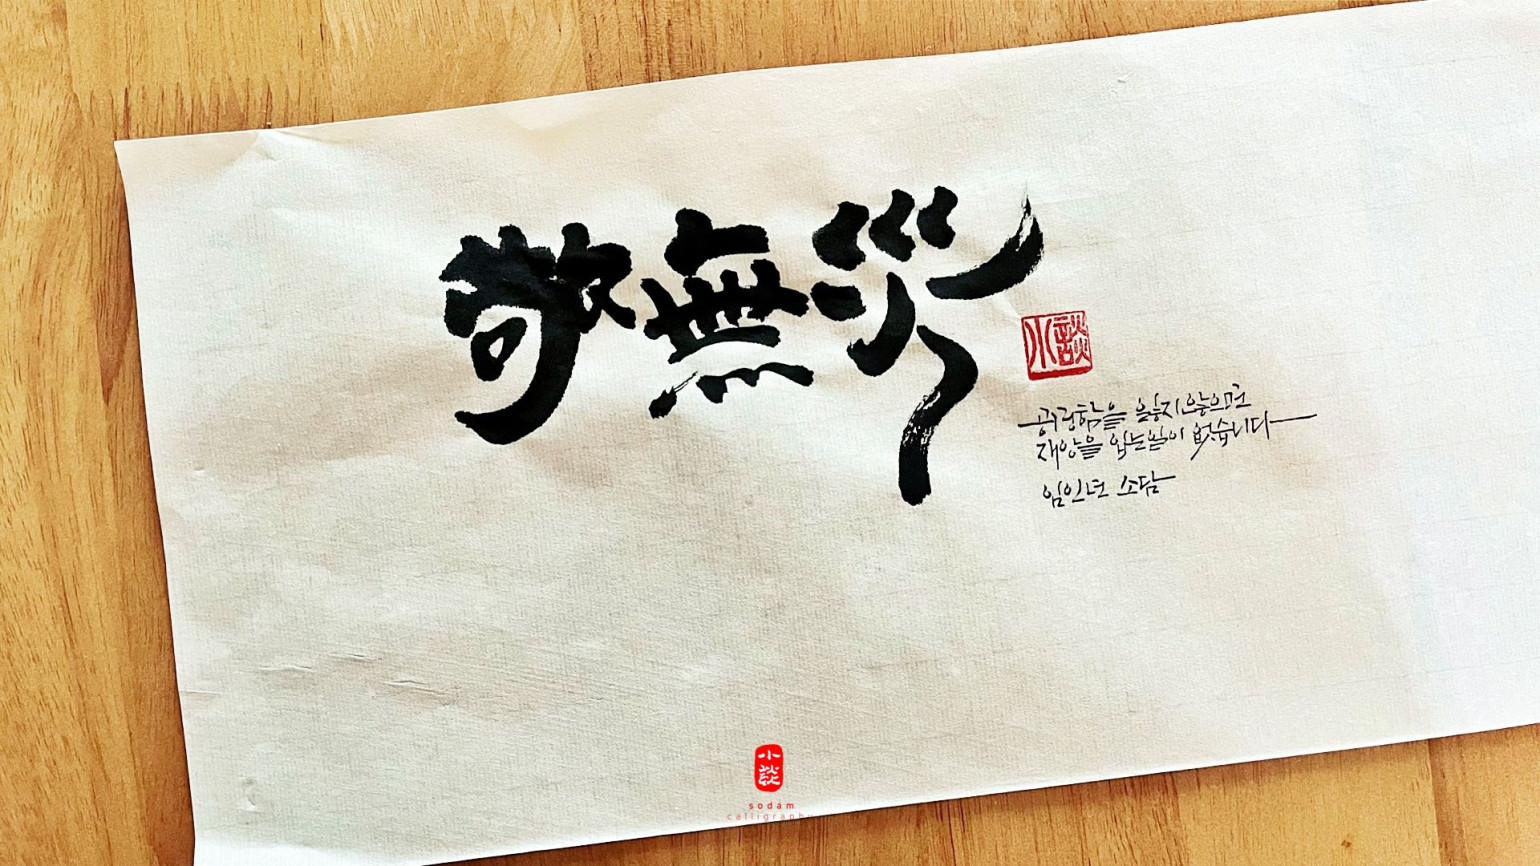 敬無災
小談
공경함을 잃지않으면
재앙을 입는일이 없습니다
임인년 소담
小談
sodam
calligraphy